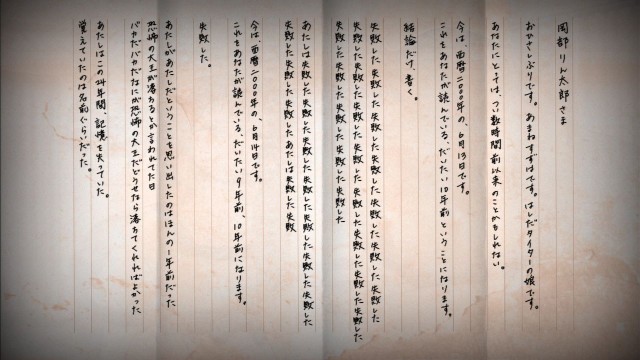 岡部りん太郎さま
おひさしぶりです。あまねすずはです。はしだタイターの娘です。
あなたにとっては、つい数時間前以来のことかもしれない。
今は、西暦二〇〇〇年の、6月13日です。
これをあなたが読んでいる、だいたい10年前ということになります。
結論だけ、書く。
失敗した失敗した失敗した失敗した失敗した失敗した
失敗した失敗した失敗した失敗した失敗した失敗した
失敗した失敗した失敗した失敗した
あたしは失敗した失敗した失敗した失敗した失敗した
失敗した失敗した失敗したあたしは失敗した失敗
今は、西暦二〇〇〇年の、6月14日です。
これをあなたが読んでいる、だいたい9年前、10年前になります。
失敗した。
あたしがあたしだということを思い出したのはほんの一年前だった
恐怖の大王が落ちるとか言われてた日
バカだバカだなにが恐怖の大王だどうせなら落ちてくれればよかった
あたしはこの24年間、記憶を失っていた。
覚えていたのは名前ぐらいだった。